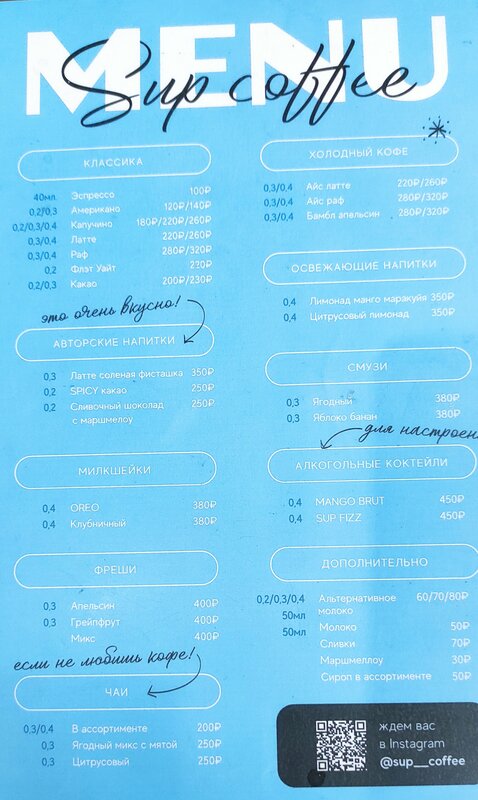 MENU
Sup coffee
КЛАССИКА
40мл. Эспрессо 100₽
0,2/0,3 Американо 120₽/140₽
0,2/0,3/0,4 Капучино 180₽/220₽/260₽
0,3/0,4 Латте 220₽/260₽
0,3/0,4 Раф 280₽/320₽
0,2 Флэт Уайт 220₽
0,2/0,3 Какао 200₽/230₽
это очень вкусно!
АВТОРСКИЕ НАПИТКИ
0,3 Латте соленая фисташка 350₽
0,2 SPICY какао 250₽
0,2 Сливочный шоколад 250₽
с маршмелоу
МИЛКШЕЙКИ
0,4 OREO 380₽
0,4 Клубничный 380₽
ФРЕШИ
0,3 Апельсин 400₽
0,3 Грейпфрут 400₽
Микс 400₽
если не любишь кофе!
ЧАИ
0,3/0,4 В ассортименте 200₽
0,3 Ягодный микс с мятой 250₽
0,3 Цитрусовый 250₽
ХОЛОДНЫЙ КОФЕ
0,3/0,4 Айс латте 220₽/260₽
0,3/0,4 Айс раф 280₽/320₽
0,3/0,4 Бамбл апельсин 280₽/320₽
ОСВЕЖАЮЩИЕ НАПИТКИ
0,4 Лимонад манго маракуйя 350₽
0,4 Цитрусовый лимонад 350₽
СМУЗИ
0,3 Ягодный 380₽
0,3 Яблоко банан 380₽
для настроен
АЛКОГОЛЬНЫЕ КОКТЕЙЛИ
0,4 MANGO BRUT 450₽
0,4 SUP FIZZ 450₽
ДОПОЛНИТЕЛЬНО
0,2/0,3/0,4 Альтернативное 60/70/80₽
молоко
50мл Молоко 50₽
50мл Сливки 70₽
Маршмеллоу 30₽
Сироп в ассортименте 50₽
ждем вас
в Instagram
@sup__coffee